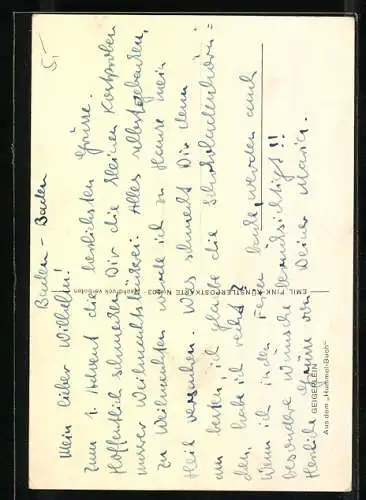 5,-
Baden-Baden
Mein lieber Wilhelm!
Zum 1. Advent die herzlichsten Grüsse.
Hoffentlich schmecken Dir die kleinen Kostproben
unserer Weihnachtsbäckerei. Alles selbstgebacken,
zu Weihnachten werde ich zu Hause mein
Heil versuchen. Was schmeckt Dir denn
am besten ich glaube die Schokoladenhörn=
chen, habe ich recht?
Wenn ich in den Ferien backe, werden auch
besondere Wünsche berücksichtigt!!
Herzliche Grüsse von Deiner Maria.
EMIL FINK KÜNSTLERPOSTKARTE No. 203 - Nachdruck verboten
GEIGERLEIN
Aus dem „Hummel-Buch"